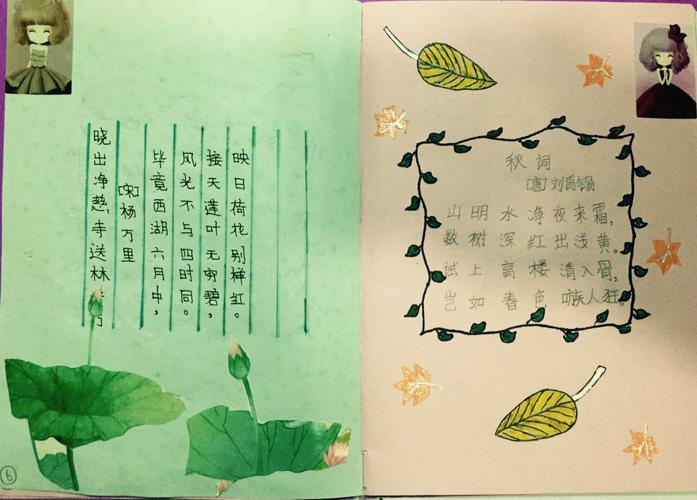 晓出净慈寺送林方
[宋]杨万里
毕竟西湖六月中，
风光不与四时同。
接天莲叶无穷碧，
映日荷花别样红。
6
秋词
[唐]刘禹锡
山明水净夜来霜，
数树深红出浅黄。
试上高楼清入骨，
岂如春色嗾人狂。